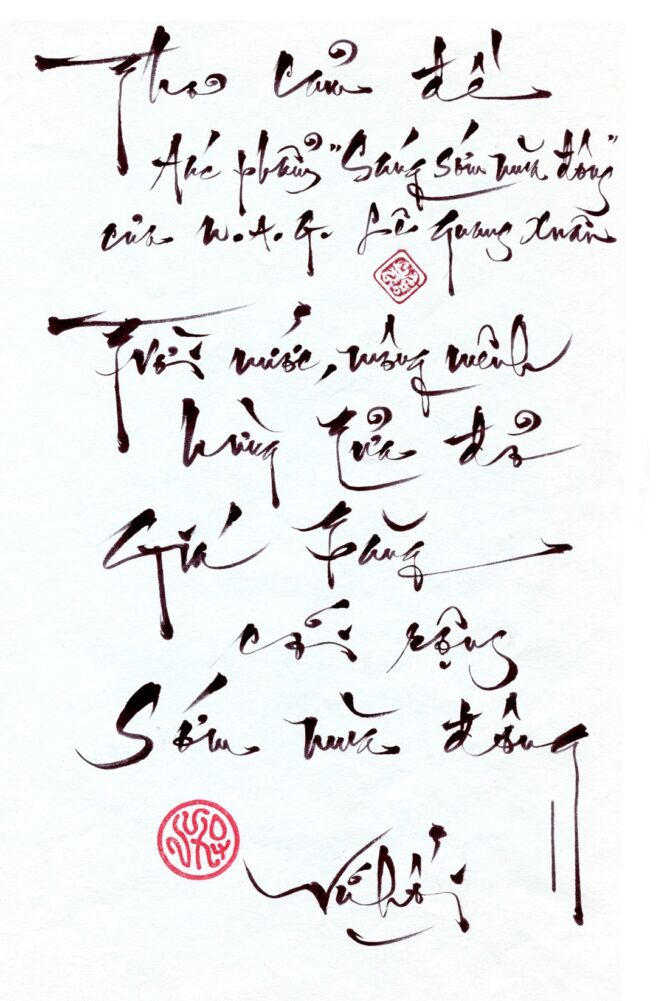 Thơ cảm đề
phẩm "Sáng sớm mùa đông"
của N.A.G. Lê Quang Xuân
Trời nước, mông mênh
hừng lửa đỏ
Giá băng
cõi rộng
Sớm mùa đông
Vũ Hối